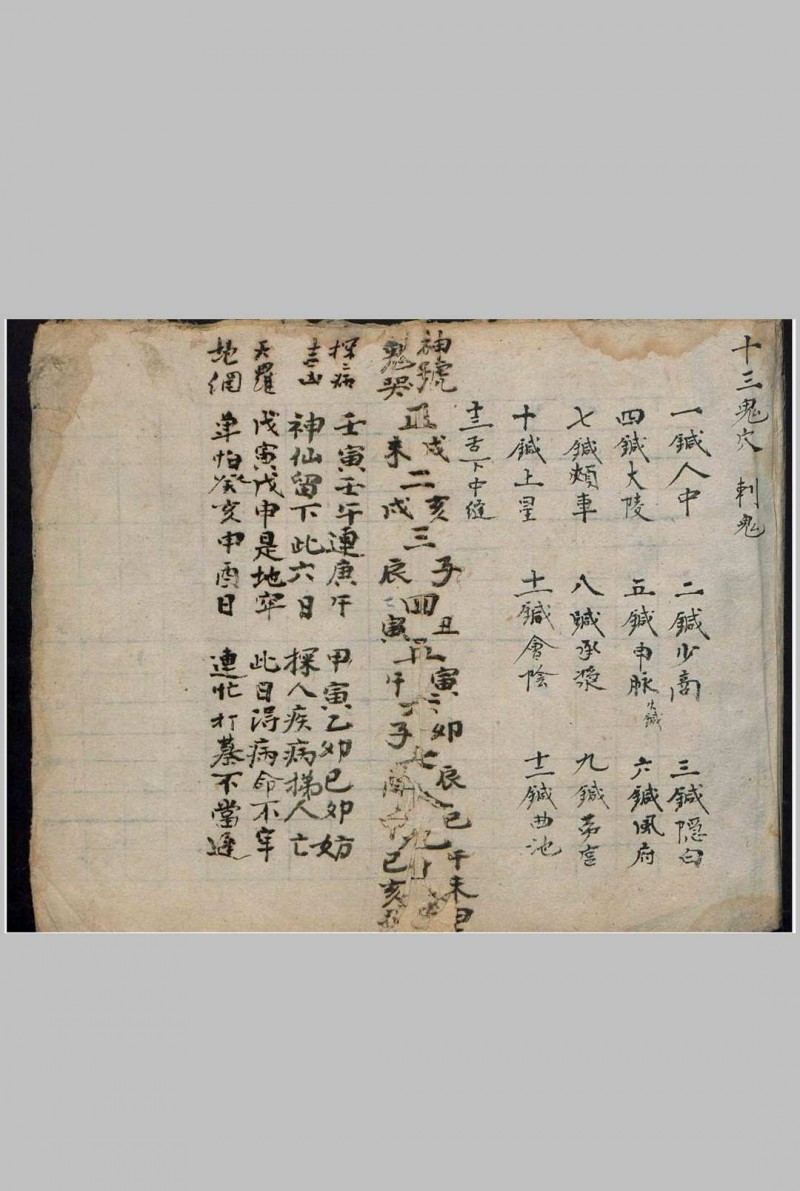 十三鬼穴 刺鬼
一鍼人中 二鍼少商 三鍼隱白
四鍼大陵 五鍼申脉火鍼 六鍼風府
七鍼頰車 八鍼承漿 九鍼劳宫
十鍼上星 十一鍼會陰 十二鍼曲池
十三舌下中縫
神號 戌 亥 子 丑 寅 卯 辰 巳 午 未 申
正 二 三 四 五 六 七 八 九 十
鬼哭 未 戌 辰 寅 午 子 酉 申 巳 亥 丑
探病 壬寅壬午連庚午 甲寅乙卯巳卯妨
吉凶 神仙留下此六日 探人疾病掦人亡
天羅 戊寅戊申是地牢 此日得病命不牢
地網 单怕癸亥申酉日 連忙打墓不當遲